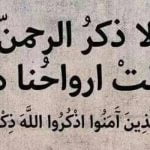 لا ذكرُ الرحمنّ
تْ ارواحُنا
ذينَ آمَنُوا اذْكُرُوا اللَّهَ ذِكْ